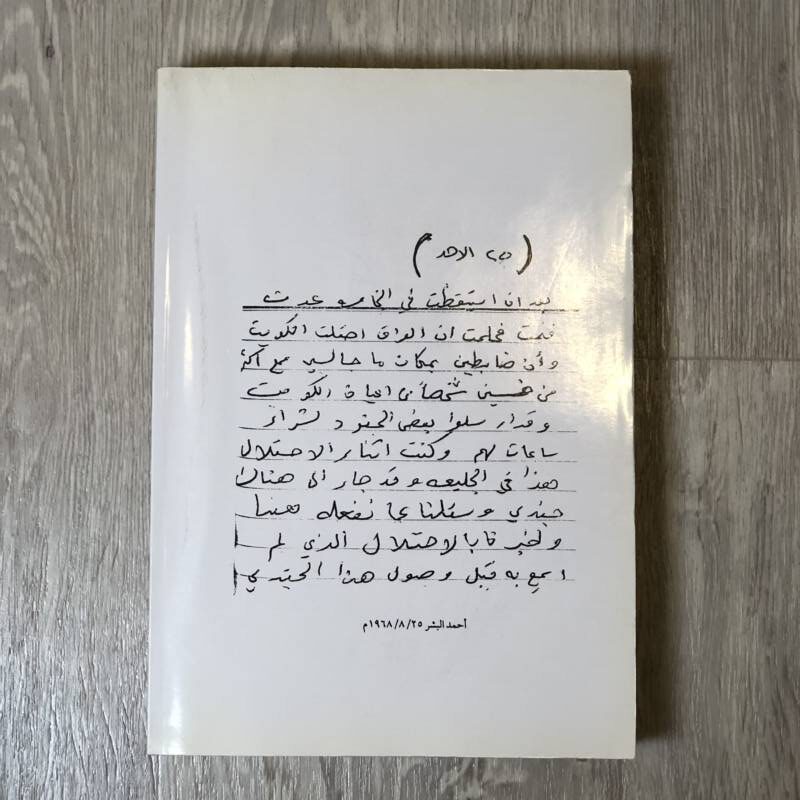 (٢٥ الاحد)
بعد ان استيقظت في الخامسه عدت
فنمت فحلمت ان العراق احتلت الكويت
وأن ضابطين بمكان ما جالسين مع أكثر
من خمسين شخصاً من اعيان الكويت
وقد ارسلوا بعض الجنود لشراء
ساعات لهم وكنت اثناء الاحتلال
هذا في الجليعه وقد جاء الى هناك
جندي وسئلنا عما نفعله هنا
واخبرنا بالاحتلال الذي لم
اسمع به قبل وصول هذا الجندي
أحمد البشر ١٩٦٨/٨/٢٥م